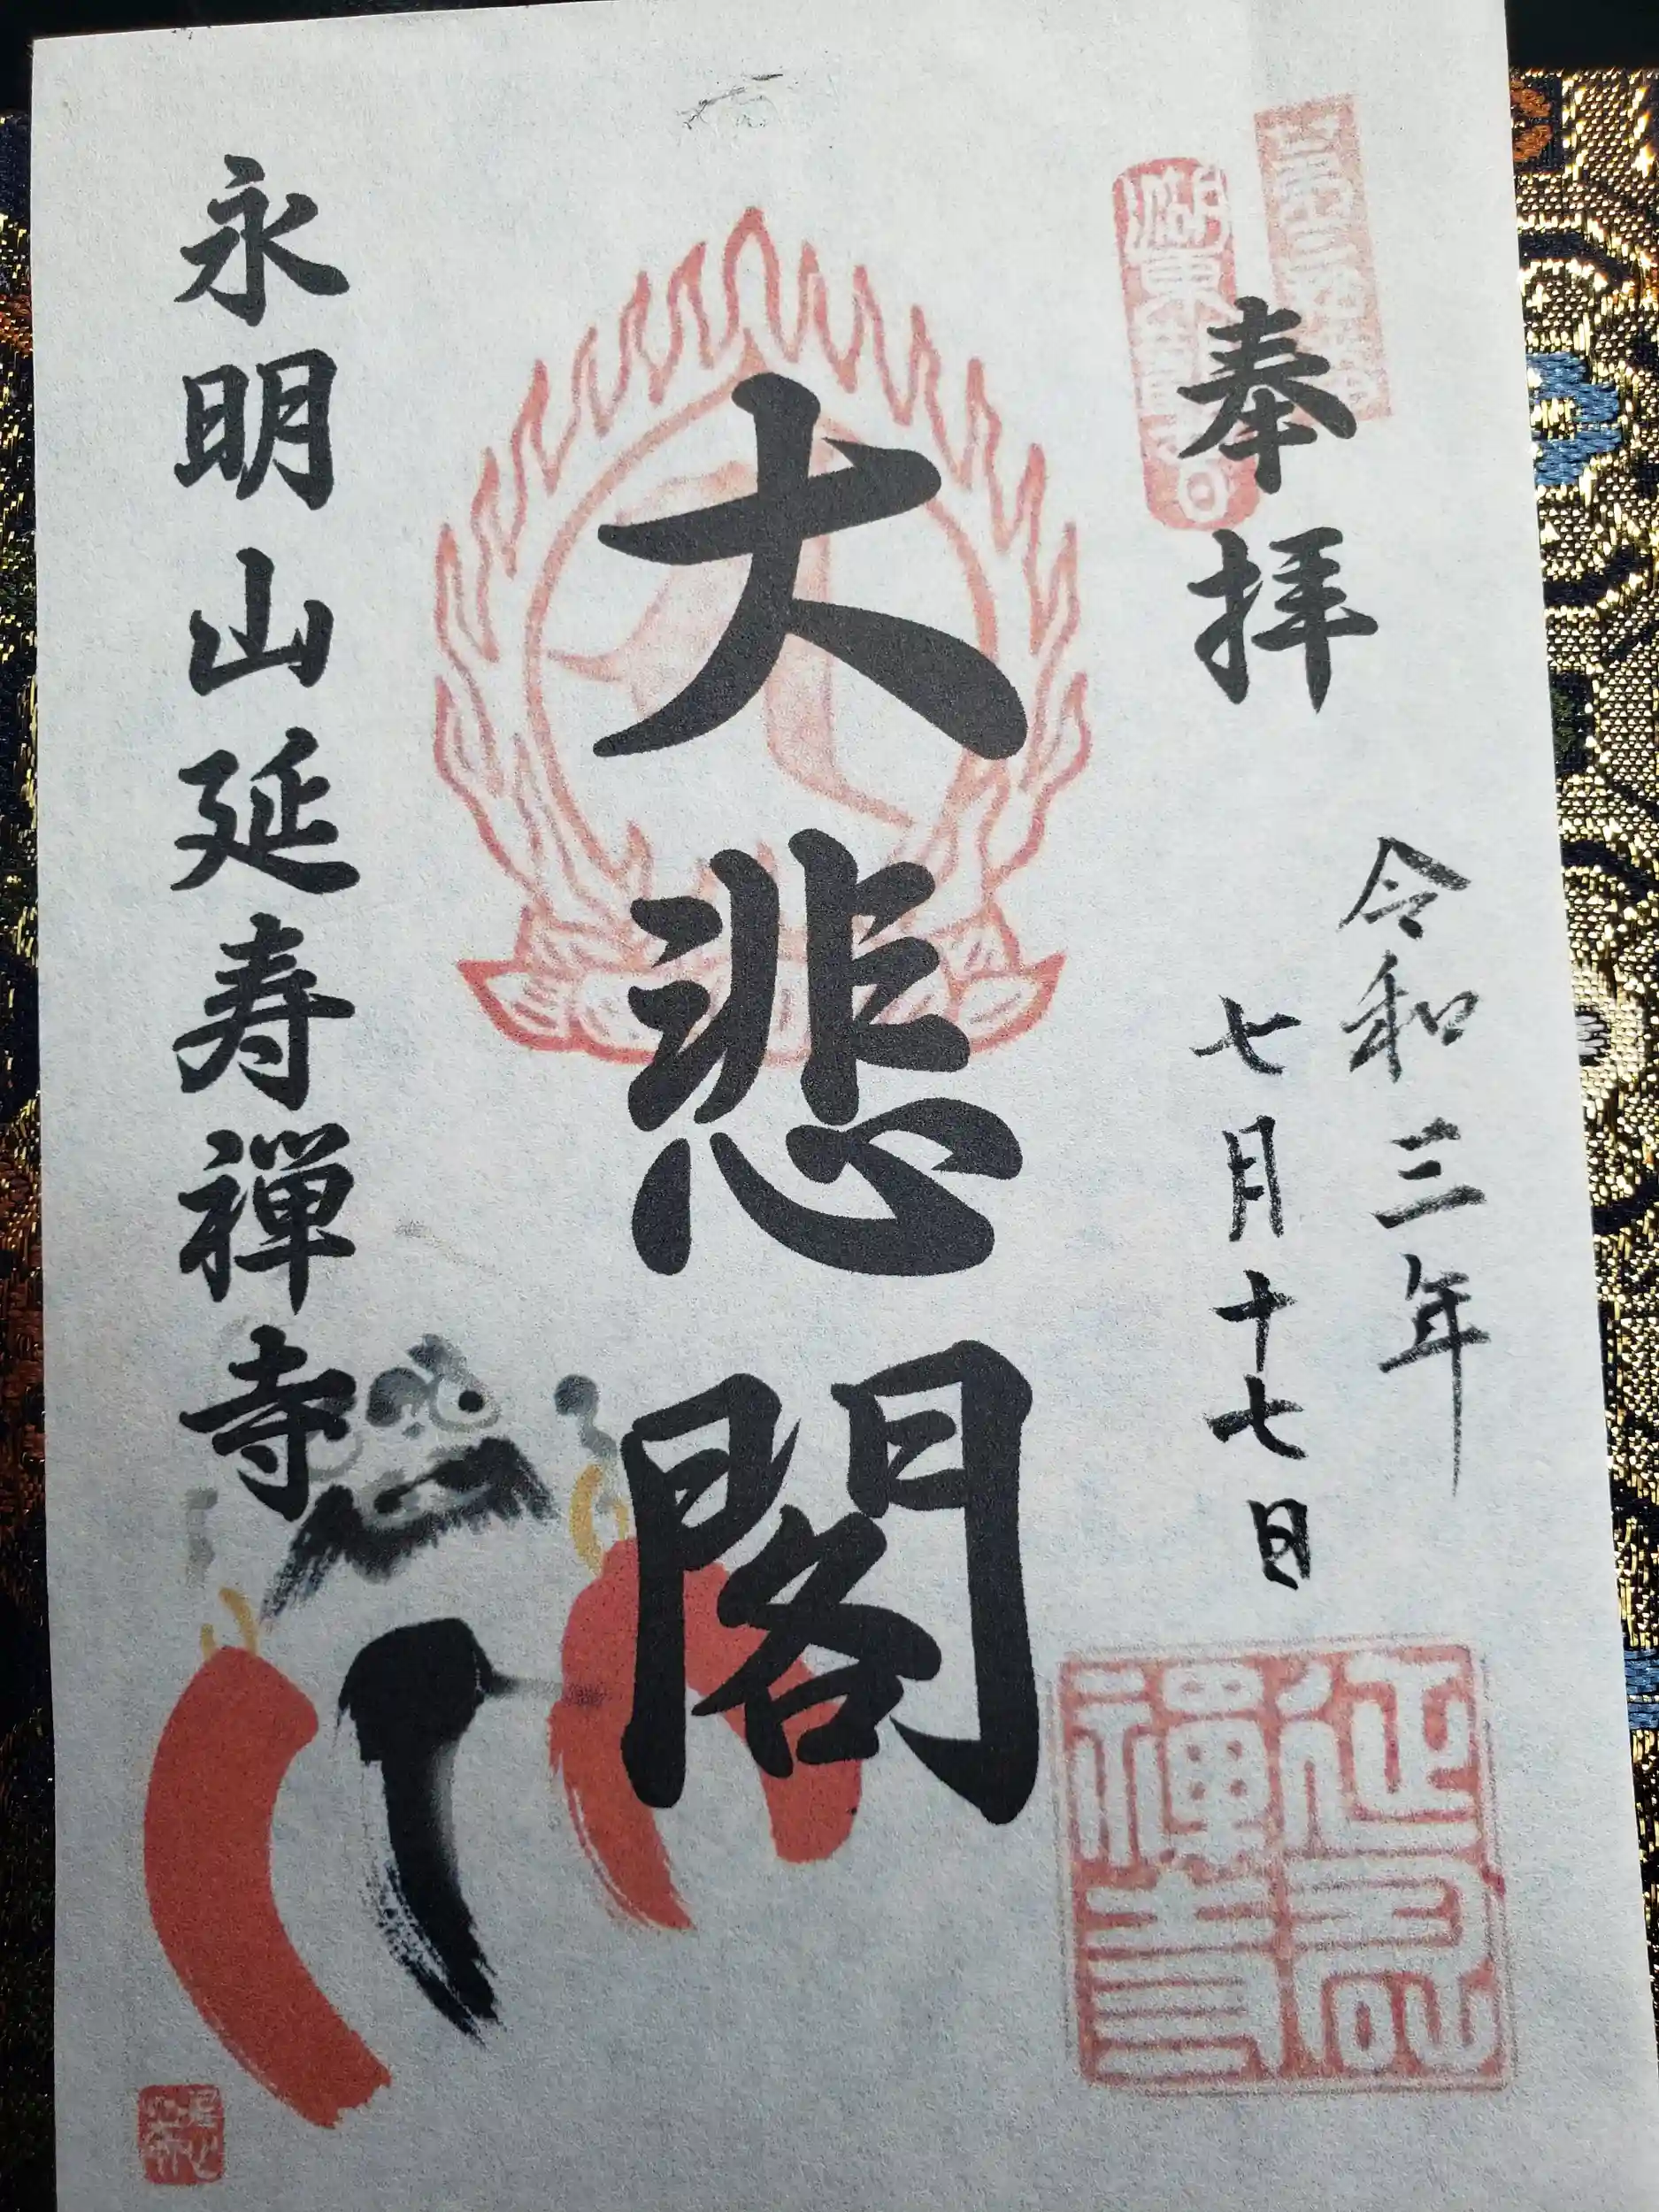 奉拝
令和三年
七月十七日
大悲閣
永明山延寿禅寺
延壽
禪寺